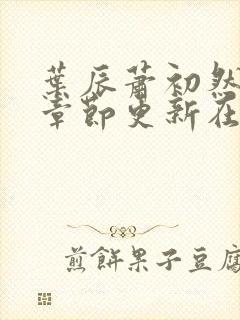 葉辰蕭初然
章節更新在
煎餅果子豆腐